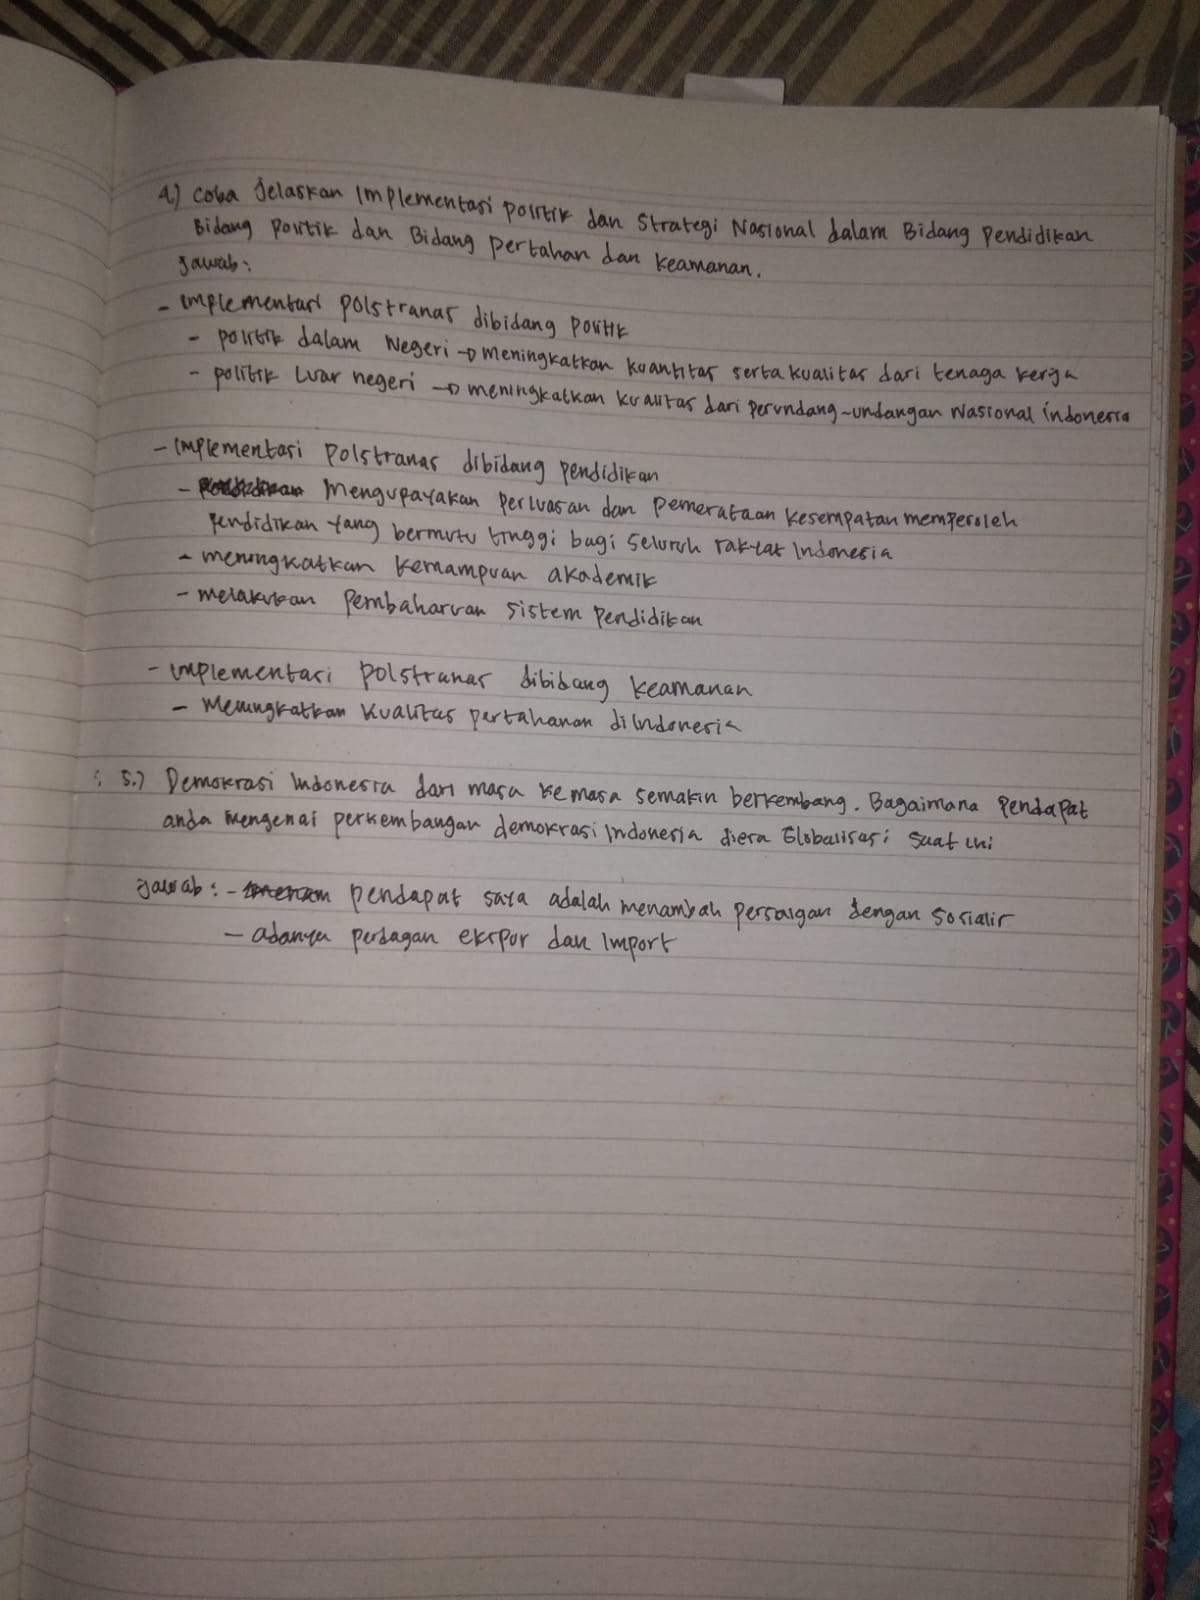 4) Coba Jelaskan Implementasi politik dan Strategi Nasional dalam Bidang Pendidikan
Bidang politik dan Bidang pertahan dan keamanan.
Jawab:
- implementasi polstranas dibidang politik
- politik dalam Negeri → meningkatkan kuantitas serta kualitas dari tenaga kerja
- politik Luar negeri → meningkatkan kualitas dari perundang-undangan Nasional indonesia
- implementasi polstranas dibidang pendidikan
- Mengupayakan perluasan dan pemerataan kesempatan memperoleh
pendidikan yang bermutu tinggi bagi seluruh rakyat Indonesia
- meningkatkan kemampuan akademik
- melakukan pembaharuan sistem pendidikan
- implementasi polstranas dibidang keamanan
- Meningkatkan kualitas pertahanan diindonesia
5.) Demokrasi Indonesia dari masa ke masa semakin berkembang. Bagaimana pendapat
anda mengenai perkembangan demokrasi Indonesia diera Globalisasi saat ini
Jawab: - pendapat saya adalah menambah persaigan dengan sosialis
- adanya perdagan ekspor dan Import